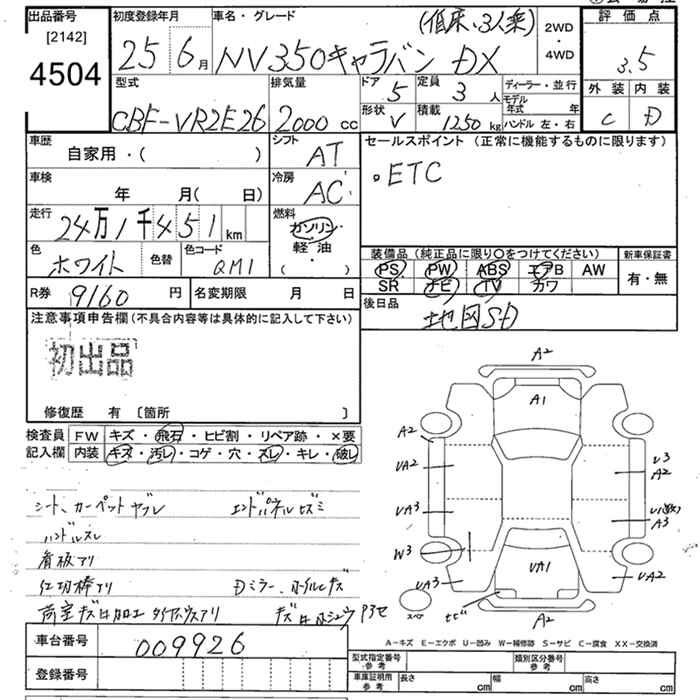 出品番号 初度登録年月 車名・グレード (低床、3人乗) 2WD・4WD 評価点
[2142]
4504 25 6月 NV350キャラバン DX 3.5
型式 排気量 ドア 5 定員 3人 ディーラー・並行 外装 内装
CBF-VR2E26 2000cc 形状 V 積載 1250kg モデル年式 年 ハンドル 左・右 C D
車歴 シフト セールスポイント (正常に機能するものに限ります)
自家用・( ) AT
。ETC
車検 冷房
年 月(日) AC
走行 燃料
24万1千451km ガソリン・軽油・( )
色 ホワイト 色替 色コード QM1
装備品(純正品に限り○をつけてください) 新車保証書
PS PW ABS エアB AW 有・無
SR ナビ TV カワ
R券 9160円 名変期限 月 日
後日品 地図SD
注意事項申告欄(不具合内容等は具体的に記入して下さい)
初出品
修復歴 有 〔箇所 〕
検査員 FW キズ・飛石・ヒビ割・リペア跡・×要
記入欄 内装 キズ・汚レ・コゲ・穴・スレ・キレ・破レ
シート、カーペットヤブレ エンドパネルヒズミ
ハンドルスレ
看板アリ
Dミラー、
A2
A1
A2
UA2
UA3
W3
UA3
UA1
A2
A2
A3
UA2
A2
サビ
車台番号 009926
A－キズ E－エクボ U－凹み W－補修跡 S－サビ C－腐食 XX－交換済
登録番号
型式指定番号 参考 類別区分番号 参考
車庫証明用 参考 長さ cm 幅 cm 高さ cm